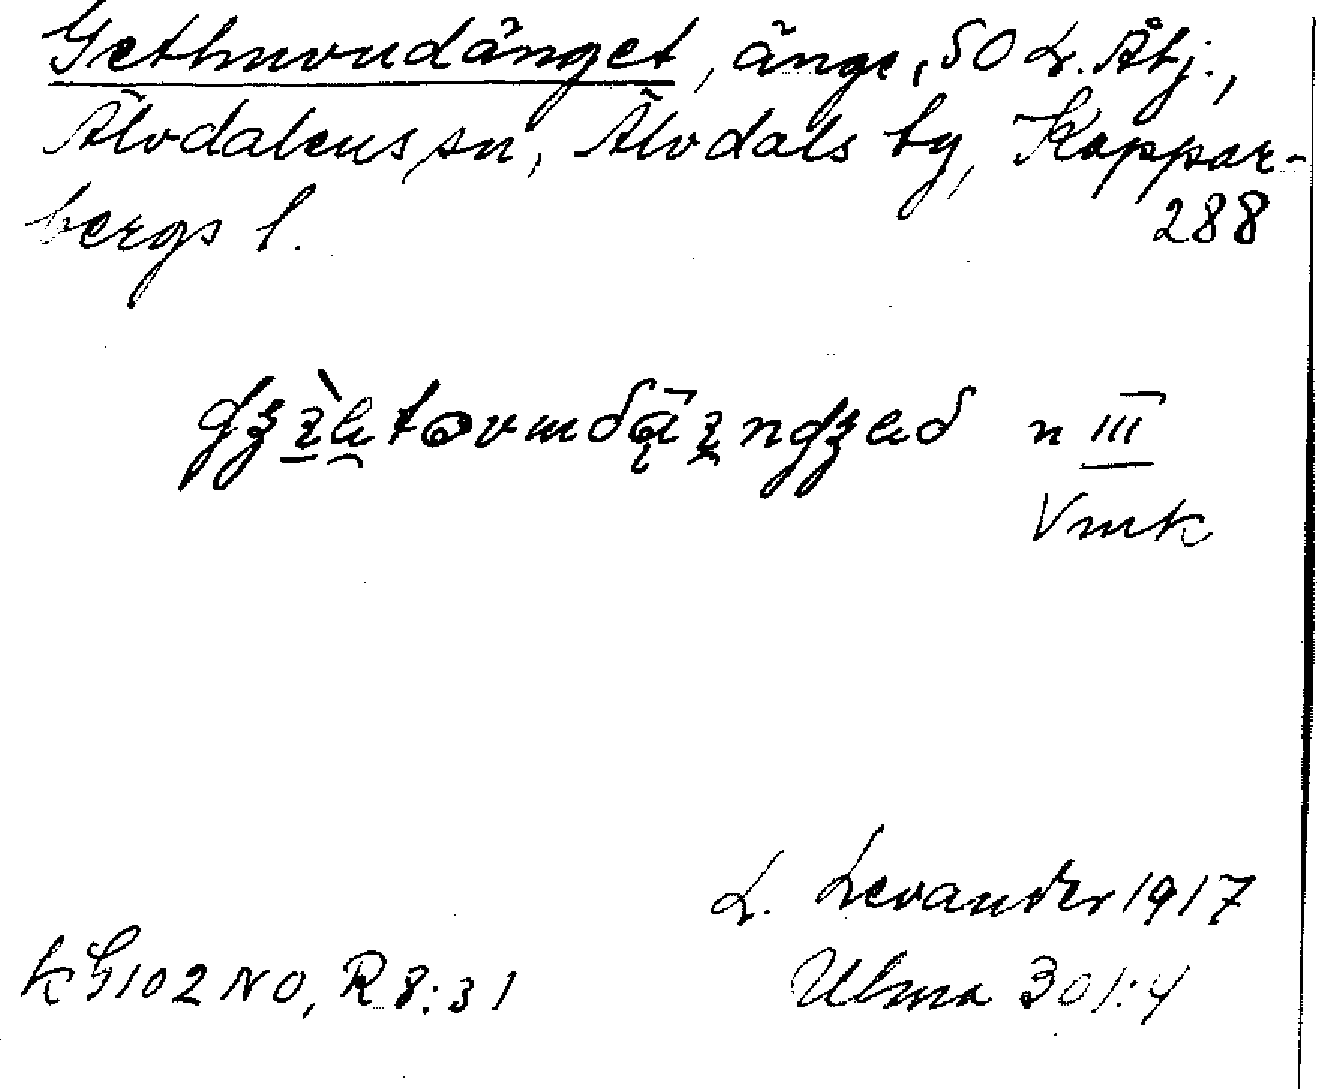 Gethuvudänget, änge, SO L. Åbj.,
Älvdalens sn, Älvdals by, Koppar-
bergs l.
288
n III
Vmk
L. Levander 1917
Ulma 301:4
k G102 NO, R 8:31